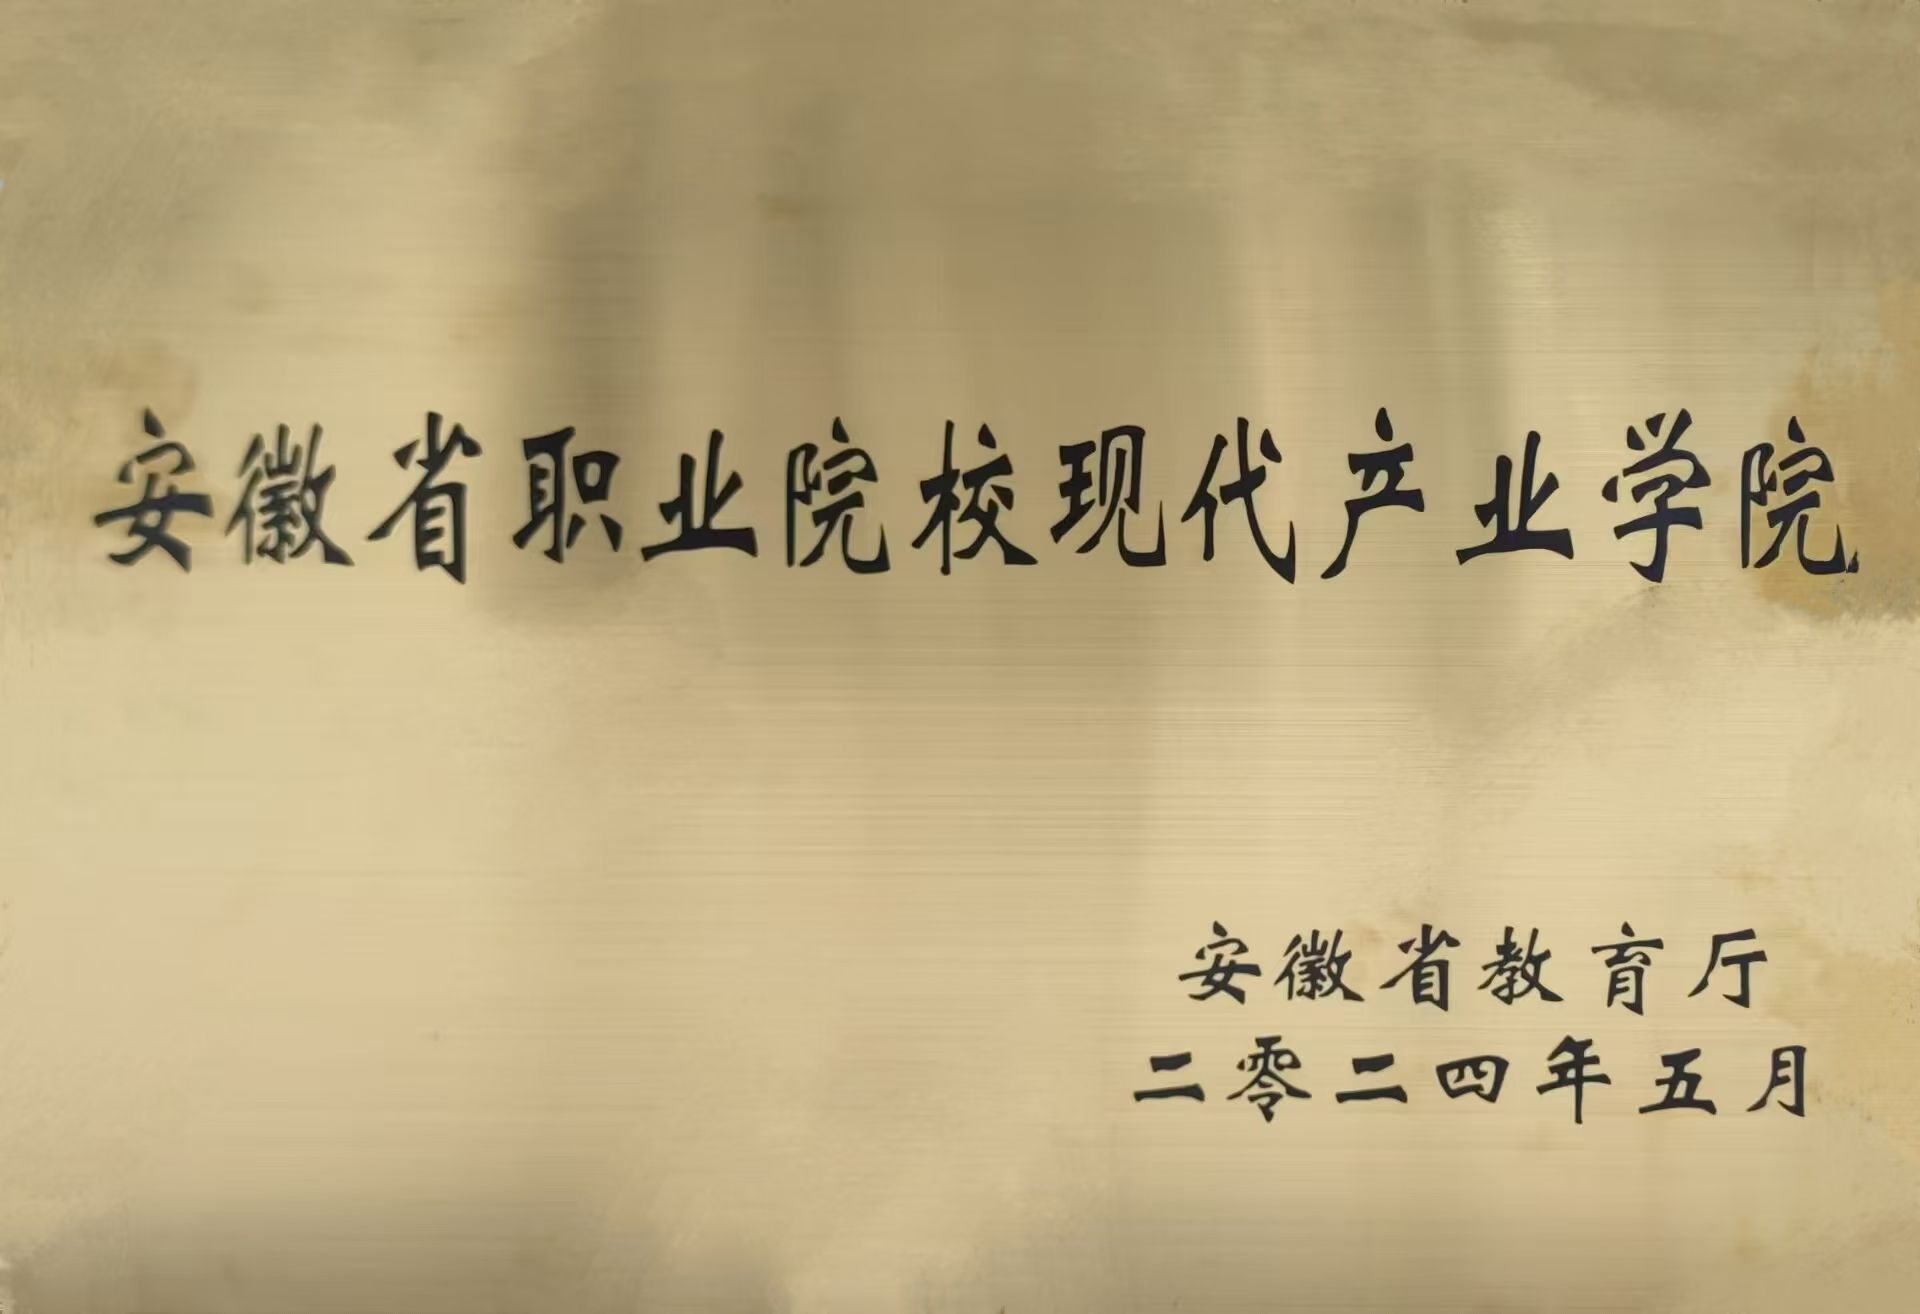 安徽省职业院校现代产业学院
安徽省教育厅
二零二四年五月